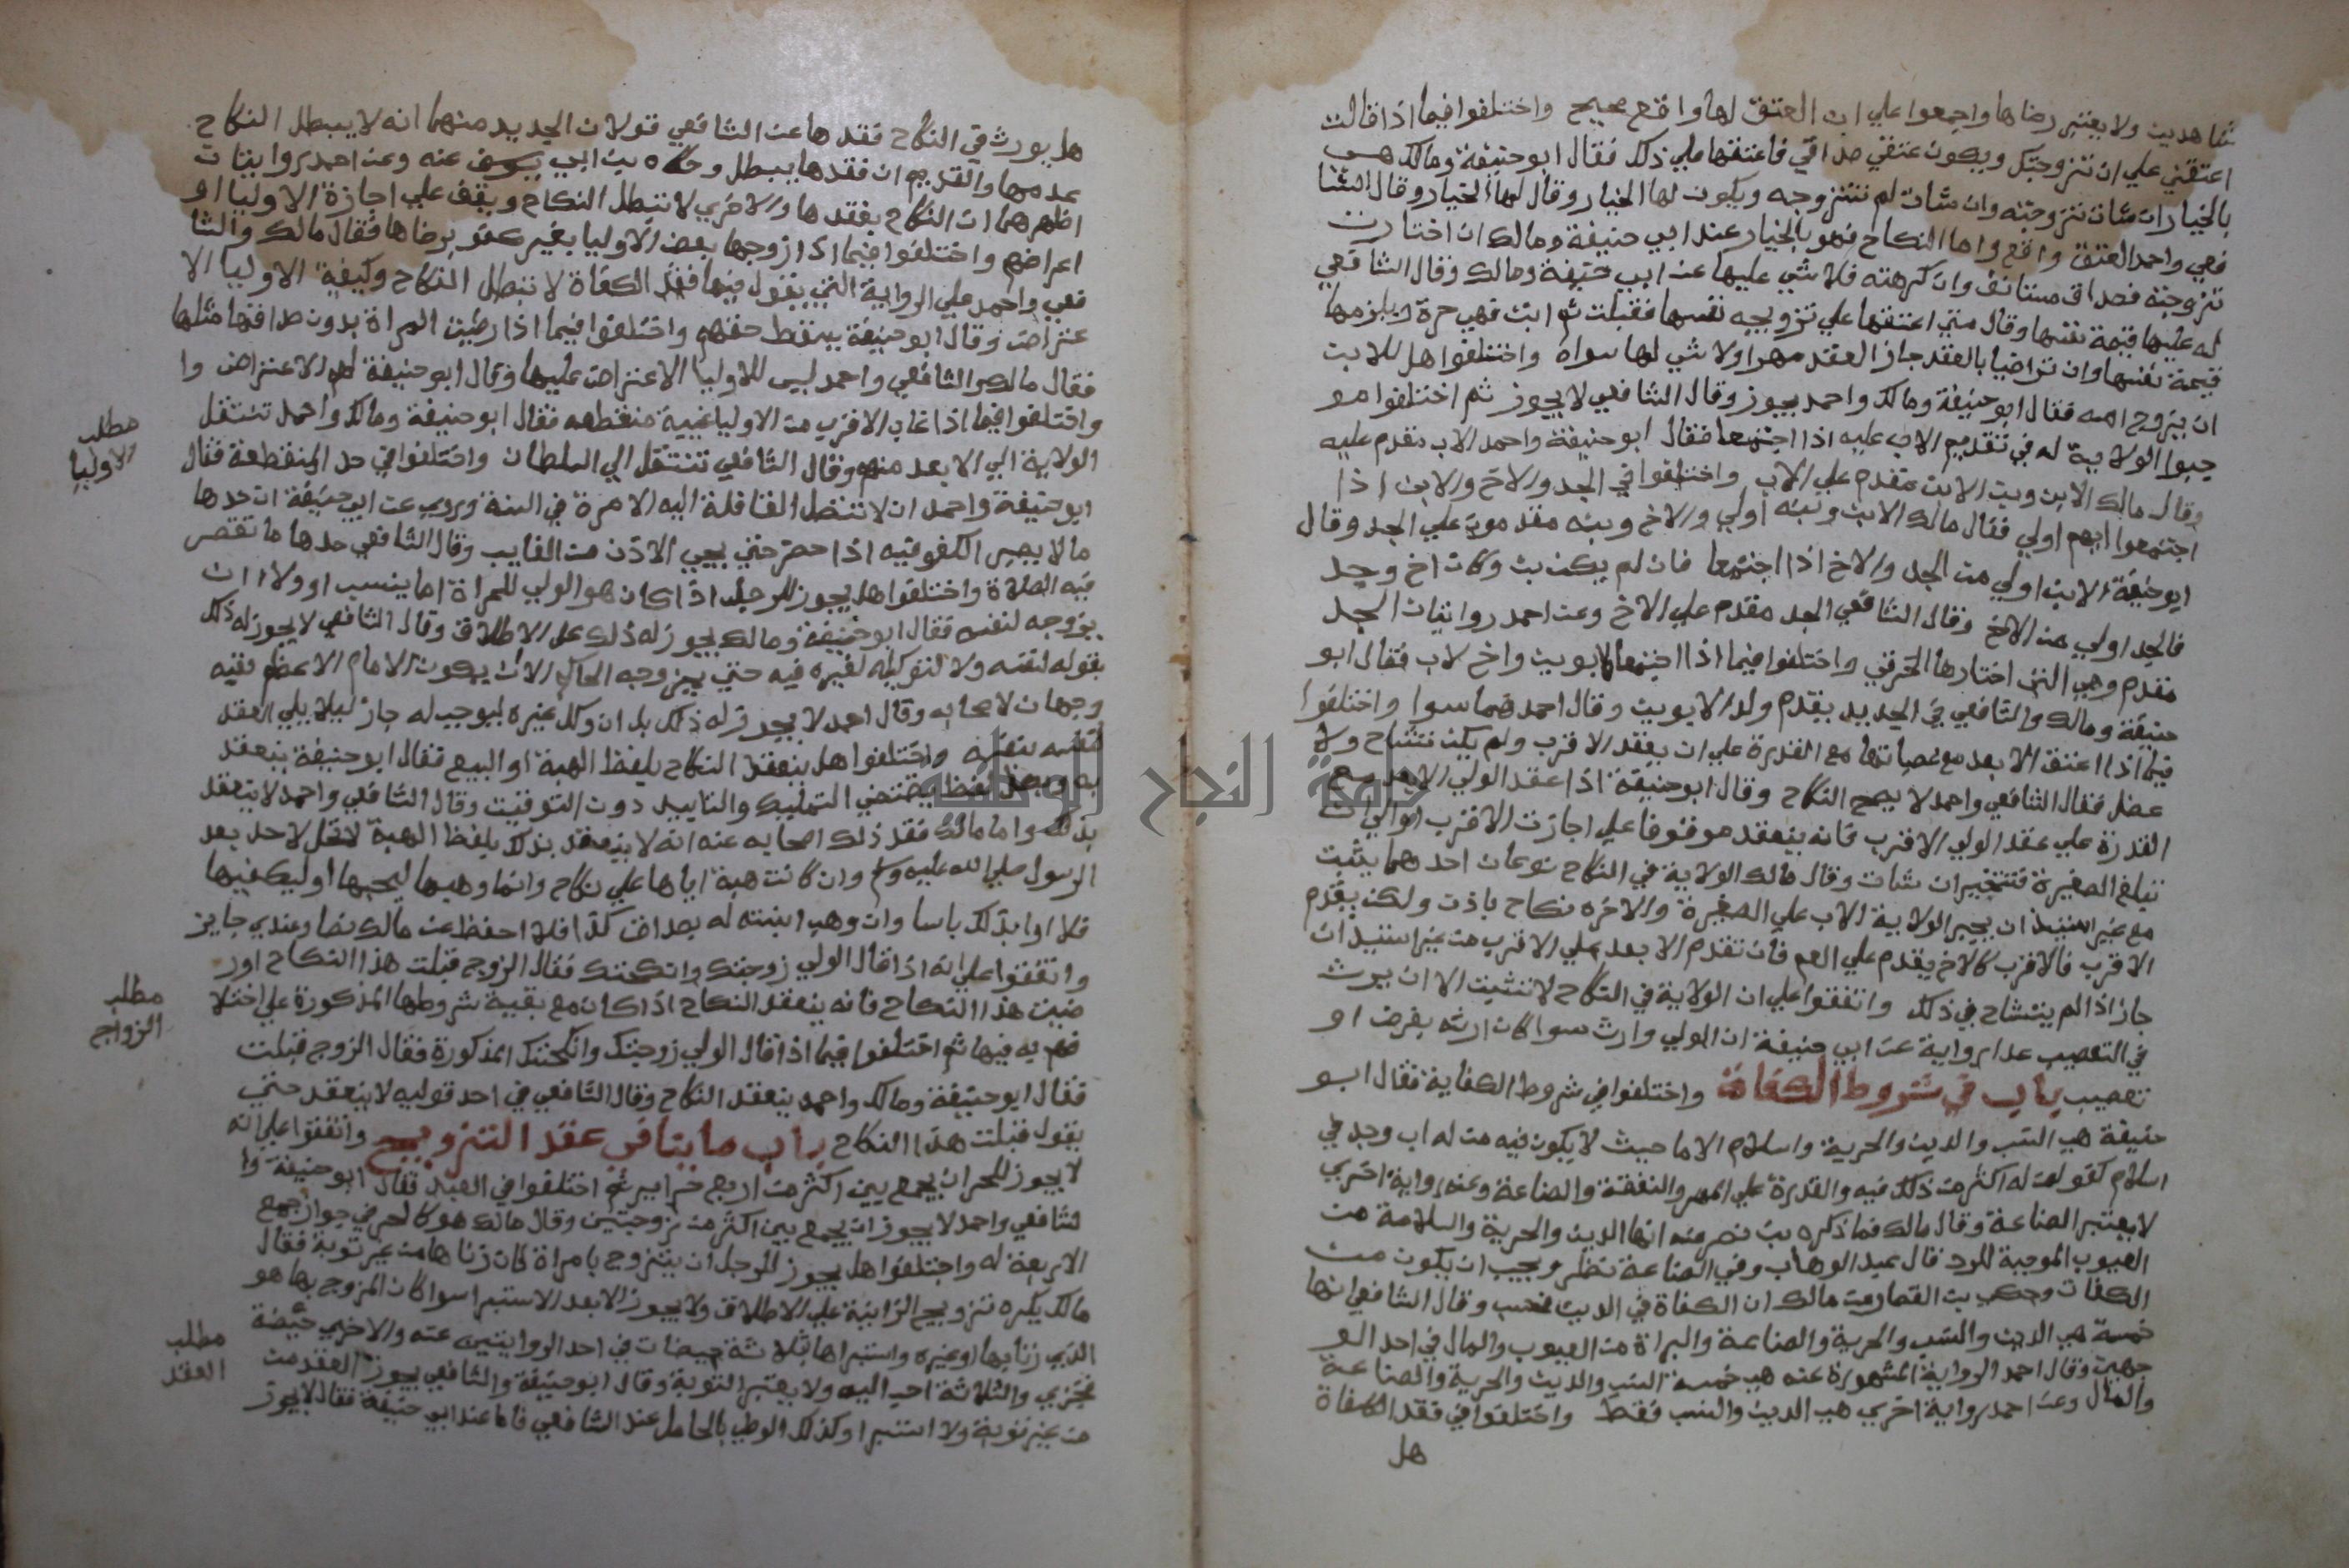 شاهدين ولا يعتبر رضاها واجمعوا علي ان العتق لها واقع صحيح واختلفوا فيما اذا قالت
اعتقني علي ان تزوجتك ويكون عتقي صداقي فاعتقها علي ذلك فقال ابو حنيفة ومالك هي
بالخيار ان شات تزوجته وان شات لم تتزوجه ويكون لها الخيار وقال لها الخيار وقال الشا
فعي واحمد العتق واقع واما النكاح فهو بالخيار عند ابي حنيفة ومالك ان اختارت
تزوجته فصداق مستانف وان كرهته فلا شي عليها عند ابي حنيفة ومالك وقال الشافعي
له عليها قيمة نفسها وقال متي اعتقها علي تزويجه نفسها فقبلت ثم ابت فهي حرة ويلزمها
قيمة نفسها وان تراضيا بالعقد جاز العقد مهرا ولا شي لها سواه واختلفوا هل للابن
ان يزوج امه فقال ابو حنيفة ومالك واحمد يجوز وقال الشافعي لا يجوز ثم اختلفوا مو
جبوا الولاية له في تقديم الاب عليه اذا اجتمعا فقال ابو حنيفة واحمد الاب مقدم عليه
وقال مالك الابن وبن الابن مقدم علي الاب واختلفوا في الجد والاخ والابن اذا
اجتمعوا ايهم اولي فقال مالك الابن وبنه اولي والاخ وبنه مقدمون علي الجد وقال
ابو حنيفة الابن اولي من الجد والاخ اذا اجتمعا فان لم يكن بن وكان اخ وجد
فالجد اولي من الاخ وقال الشافعي الجد مقدم علي الاخ وعن احمد روايتان الجد
مقدم وهي التي اختارها الخرقي واختلفوا فيما اذا اجتمعا لابوين واخ لاب فقال ابو
حنيفة ومالك والشافعي في الجديد يقدم ولد الابوين وقال احمد هما سوا واختلفوا
فيما اذا اعتق الابعد مع عصباتها مع القدرة علي ان يعقد الاقرب ولم يكن تشاح ولا
عضل فقال الشافعي واحمد لا يصح النكاح وقال ابو حنيفة اذا عقد الولي الابعد مع
القدرة علي عقد الولي الاقرب فانه ينعقد موقوفا علي اجازت الاقرب او الي ان
تبلغ الصغيرة فتتخير ان شات وقال مالك الولاية في النكاح نوعان احدهما يثبت
مع غير استيذان يجبر الولاية الاب علي الصغيرة والاخره نكاح باذن ولكن يقدم
الاقرب فالاقرب كالاخ يقدم علي العم فان تقدم الابعد علي الاقرب من غير استيذان
جاز اذا لم يتشاح في ذلك واتفقوا علي ان الولاية في النكاح لا تثبت الا ان يرث
في التعصيب عدا رواية عن ابي حنيفة ان الولي وارث سوا كان ارثه بفرض او
تعصيب باب في شروط الكفاة واختلفوا في شروط الكفاية فقال ابو
حنيفة هي النسب والدين والحرية واسلام الاما حيث لا يكون فيه من له اب وجد في
اسلام كفو لمن له اكثر من ذلك فيه والقدرة علي المهر والنفقة والصناعة وعنه رواية اخري
لا يعتبر الصناعة وقال مالك فما ذكره بن نصر عنه انها الدين والحرية والسلامة من
العيوب الموجبة للرد قال عبد الوهاب وفي الصناعة نظر ويجب ان يكون من
الكفات وحكي بن القصار عن مالك ان الكفاة في الدين فحسب وقال الشافعي انها
خمسة هي الدين والنسب والحرية والصناعة والبراة من العيوب والمال في احد الو
جهين وقال احمد الرواية المشهورة عنه هي خمسة النسب والدين والحرية والصناعة
والمال وعن احمد رواية اخري هي الدين والنسب فقط واختلفوا في فقد الكفاة
هل
هل يورث في النكاح فقدها عن الشافعي قولان الجديد منهما انه لا يبطل النكاح
عدمها والقديم ان فقدها يبطل وحكاه بن ابي يوسف عنه وعن احمد روايتان
اظهرهما ان النكاح بفقدها والاخري لا تبطل النكاح ويقف علي اجازة الاوليا او
اعراضهم واختلفوا فيما اذا زوجها بعض الاوليا بغير كفو برضاها فقال مالك والشا
فعي واحمد علي الرواية التي يقول فيها فقد الكفاة لا تبطل النكاح وكيفية الاوليا الا
عتراض وقال ابو حنيفة يسقط حقهم واختلفوا فيما اذا رضيت المراة بدون صداقها مثلها
فقال مالك والشافعي واحمد ليس للاوليا الاعتراض عليها وقال ابو حنيفة لهم الاعتراض وا
واختلفوا فيما اذا غاب الاقرب من الاوليا غيبة منقطعه فقال ابو حنيفة ومالك واحمد تنتقل
الولاية الي الابعد منهم وقال الشافعي تنتقل الي السلطان واختلفوا في حد المنقطعة فقال
ابو حنيفة واحمد ان لا تتصل القافلة اليه الا مرة في السنة وروي عن ابي حنيفة ان حدها
ما لا يصبر الكفو فيه اذا حضر حتي يجي الاذن من الغايب وقال الشافعي حدها ما تقصر
فيه الصلاة واختلفوا هل يجوز للرجل اذا كان هو الولي للمراة اما بنسب او ولاء ان
يزوجه لنفسه فقال ابو حنيفة ومالك يجوز له ذلك علي الاطلاق وقال الشافعي لا يجوز له ذلك
بقوله لنفسه ولا لتوكيله لغيره فيه حتي يزوجه الحاكم الا ان يكون الامام الاعظم ففيه
وجهان لاصحابه وقال احمد لا يجوز له ذلك بل ان وكل غيره ليوجب له جاز ليلا يلي العقد
لنفسه بنفسه واختلفوا هل ينعقد النكاح بلفظ الهبة او البيع فقال ابو حنيفة ينعقد
به وبكل لفظ يقتضي التمليك والتاييد دون التوقيت وقال الشافعي واحمد لا ينعقد
بذلك واما مالك فقد ذلك اصحابه عنه انه لا ينعقد بذلك بلفظ الهبة لا تحل لاحد بعد
الرسول صلي الله عليه وسلم وان كانت هبة اياها علي نكاح وانما وهبها ليحبها او ليكفيها
فلا اري بذلك باسا وان وهب ابنته له بصداق كذا فلا احفظ عن مالك نصا وعندي جايز
واتفقوا علي انه اذا قال الولي زوجتك وانكحتك فقال الزوج قبلت هذا النكاح اور
ضيت هذا النكاح فانه ينعقد النكاح اذا كان مع بقية شروطها المذكورة علي اختلا
فهم به فيها ثم اختلفوا فيما اذا قال الولي زوجتك وانكحتك المذكورة فقال الزوج قبلت
فقال ابو حنيفة ومالك واحمد ينعقد النكاح وقال الشافعي في احد قوليه لا ينعقد حتي
يقول قبلت هذا النكاح باب ما ينافي عقد التزويج واتفقوا علي انه
لا يجوز للحر ان يجمع بين اكثر من اربع حراير ثم اختلفوا في العبد فقال ابو حنيفة وا
لشافعي واحمد لا يجوز ان يجمع بين اكثر من زوجتين وقال مالك هو كالحر في جواز جمع
الاربعة له واختلفوا هل يجوز للرجل ان يتزوج بامراة كان زنا ها من غير توبة فقال
مالك يكره تزويج الزانية علي الاطلاق ولا يجوز الا بعد الاستبرا سوا كان المزوج بها هو
الذي زنا بها او غيره واستبراها بثلاثة حيضات في احد الروايتين عنه والاخري حيضة
تجزي والثلاثة احب اليه ولا يعتبر التوبة وقال ابو حنيفة والشافعي يجوز العقد من
من غير توبة ولا استبرا وكذلك الوطي بالحامل عند الشافعي فاما عند ابي حنيفة فقال لا يجوز
مطلب
الاوليا
مطلب
الزواج
مطلب
العقد
جامعة النجاح الوطنية